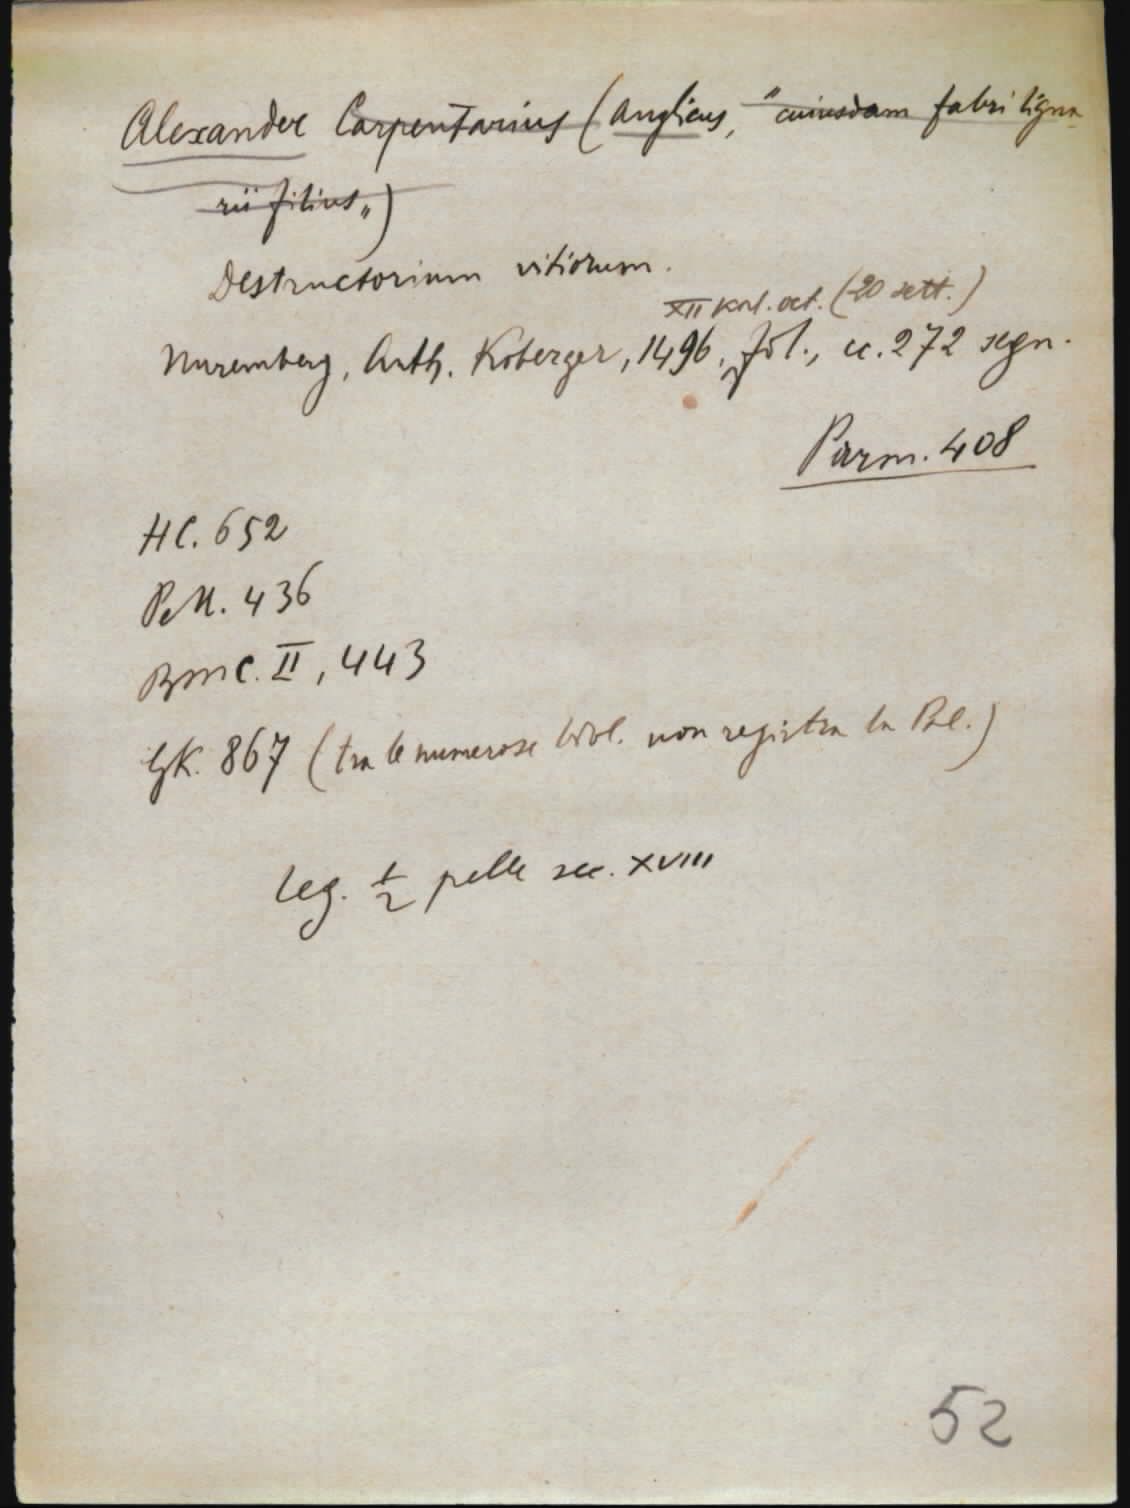 Alexander Carpentarius (Anglicus, "cuiusdam fabri ligna-
rii filius")
Destructorium vitiorum.
XII kal. oct. (20 sett.)
Nuremberg, Anth. Koberger, 1496, fol., cc. 272 segn.
Parm. 408
HC. 652
Pell. 436
BMC. II, 443
GK. 867 (tra le numerose bibl. non registra la Pal.)
Leg. 1/2 pelle sec. XVIII
52